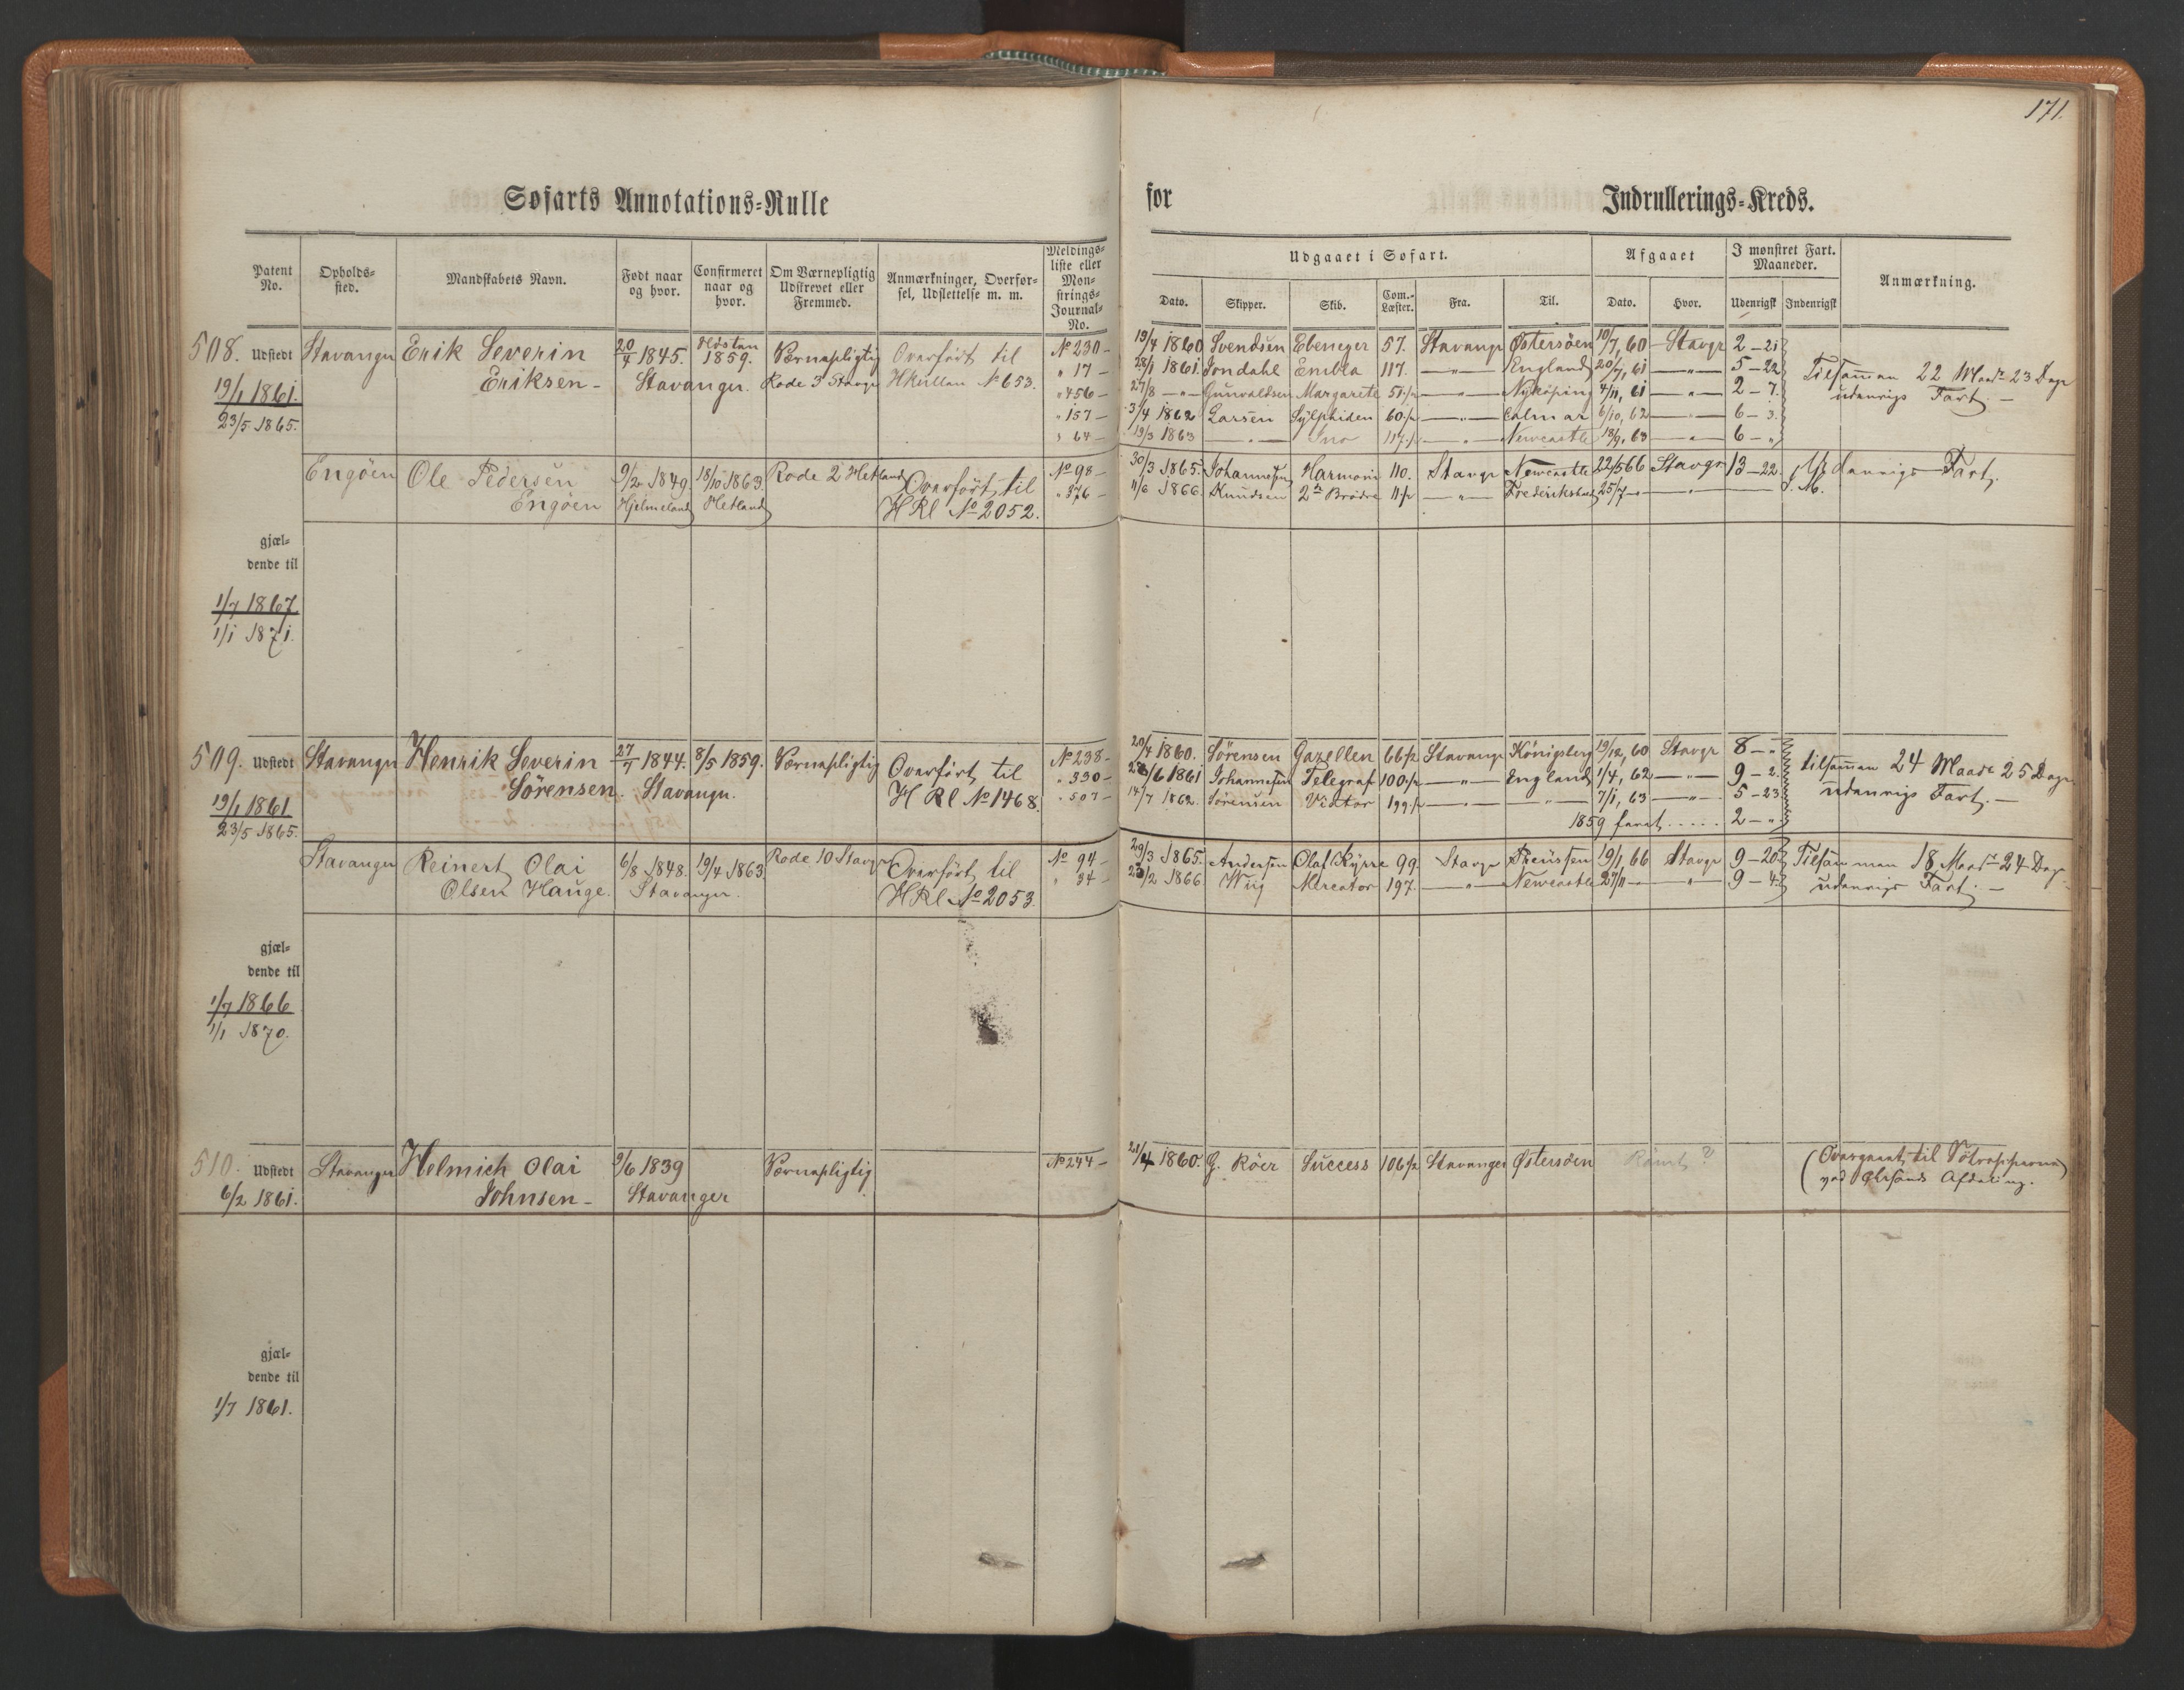 171.
Søfarts Annotations-Rulle for Indrullerings-Kreds.
Patent No. Opholds-sted. Mandskabets Navn. Født naar og hvor. Confirmeret naar og hvor. Om Værnepligtig Udskrevet eller Fremmed. Anmærkninger, Overførsel, Udslettelse m. m. Meldings-liste eller Mønstrings-Journal-No.
Udgaaet i Søfart. Afgaaet I mønstret Fart. Maaneder. Anmærkning.
Dato. Skipper. Skib. Com.-Læster. Fra. Til. Dato. Hvor. Udenrigsk Indenrigsk
508. Udstedt Stavanger Erik Severin 20/4 1845. 1859. Værnepligtig Overført til No 230 –
19/1 1861. Eriksen – Stavanger. Rode 3 Stavgr No 653. " 17 –
23/5 1865. " 456 –
" 157 –
" 64 –
19/4 1860 Svendsen Ebenezer 57. Stavangr Østersøen 10/7, 60 Stavgr 2 – 21
28/1 1861. Jondahl Embla 117. — " — England 20/7, 61 — " — 5 – 22 Tilsammen 22 Maadr 23 Dage
27/8 — " — Gunvaldsen Margarete 51 1/2 — " — Nykøping 4/11, 61 — " — 2 – 7. udenrigs Fart. –
3/4 1862 Larsen Sylphiden 60 1/2 — " — Calmar 6/10, 62 — " — 6 – 3.
19/3 1863 — " — Ino 117 1/2 — " — Newcastle 18/9, 63 — " — 6 – "
Engøen Ole Pedersen 9/2 1849 18/10 1863. Rode 2 Hetland Overført til No 98 –
Engøen Hjelmeland Hetland H Rl No 2052. " 376 –
30/3 1865. Johannesen Harmoni 110. Stavgr Newcastle 22/5 66 Stavgr 13 – 22. Udenrigs Fart.
11/6 1866. Knudsen 2de Brødre 11 1/2 — " — 25/7 — — " — S. M.
gjæl-
dende til
1/7 1867
1/1 1871.
509. Udstedt Stavanger Henrik Severin 27/7 1844. 8/5 1859. Værnepligtig Overført til No 238 –
19/1 1861. Sørensen. Stavangr. H Rl No 1468. " 330 –
23/5 1865. " 507 –
20/4 1860. Sørensen Gazellen 66 1/2 Stavangr Königsberg 19/12, 60 Stavgr 8 – " tilsammen 24 Maadr 25 Dage
28/6 1861 Johannesen Telegraf 100 1/2 — " — England 1/4, 62 — " — 9 – 2. udenrigs Fart. –
14/7 1862. Sørensen Viator 199 1/2 — " — — " — 7/1, 63 — " — 5 – 23.
1859 faret ..... 2 – "
Stavanger Reinert Olai 6/8 1848. 19/4 1863 Rode 10 Stavgr Overført til No 94 –
Olsen Hauge. Stavanger. H Rl No 2053. " 34 –
29/3 1865. Andersen Olaf Kyrre 99. Stavgr Preussen 19/1, 66 Stavgr 9 – 20. Tilsammen 18 Maadr 24 Dage
23/2 1866. Wiig Mercator 197. — " — Newcastle 27/11 — — " — 9 – 4. udenrigs Fart. –
gjæl-
dende til
1/7 1866
1/1 1870.
510. Udstedt Stavanger Helmich Olai 9/6 1839 Værnepligtig No 244 –
6/2 1861. Johnsen – Stavanger
21/4 1860. G. Röer Success 106 1/2 Stavanger Østersøen Rømt ? (Overgaaet til
ved Afdeling.
gjæl-
dende til
1/7 1861.